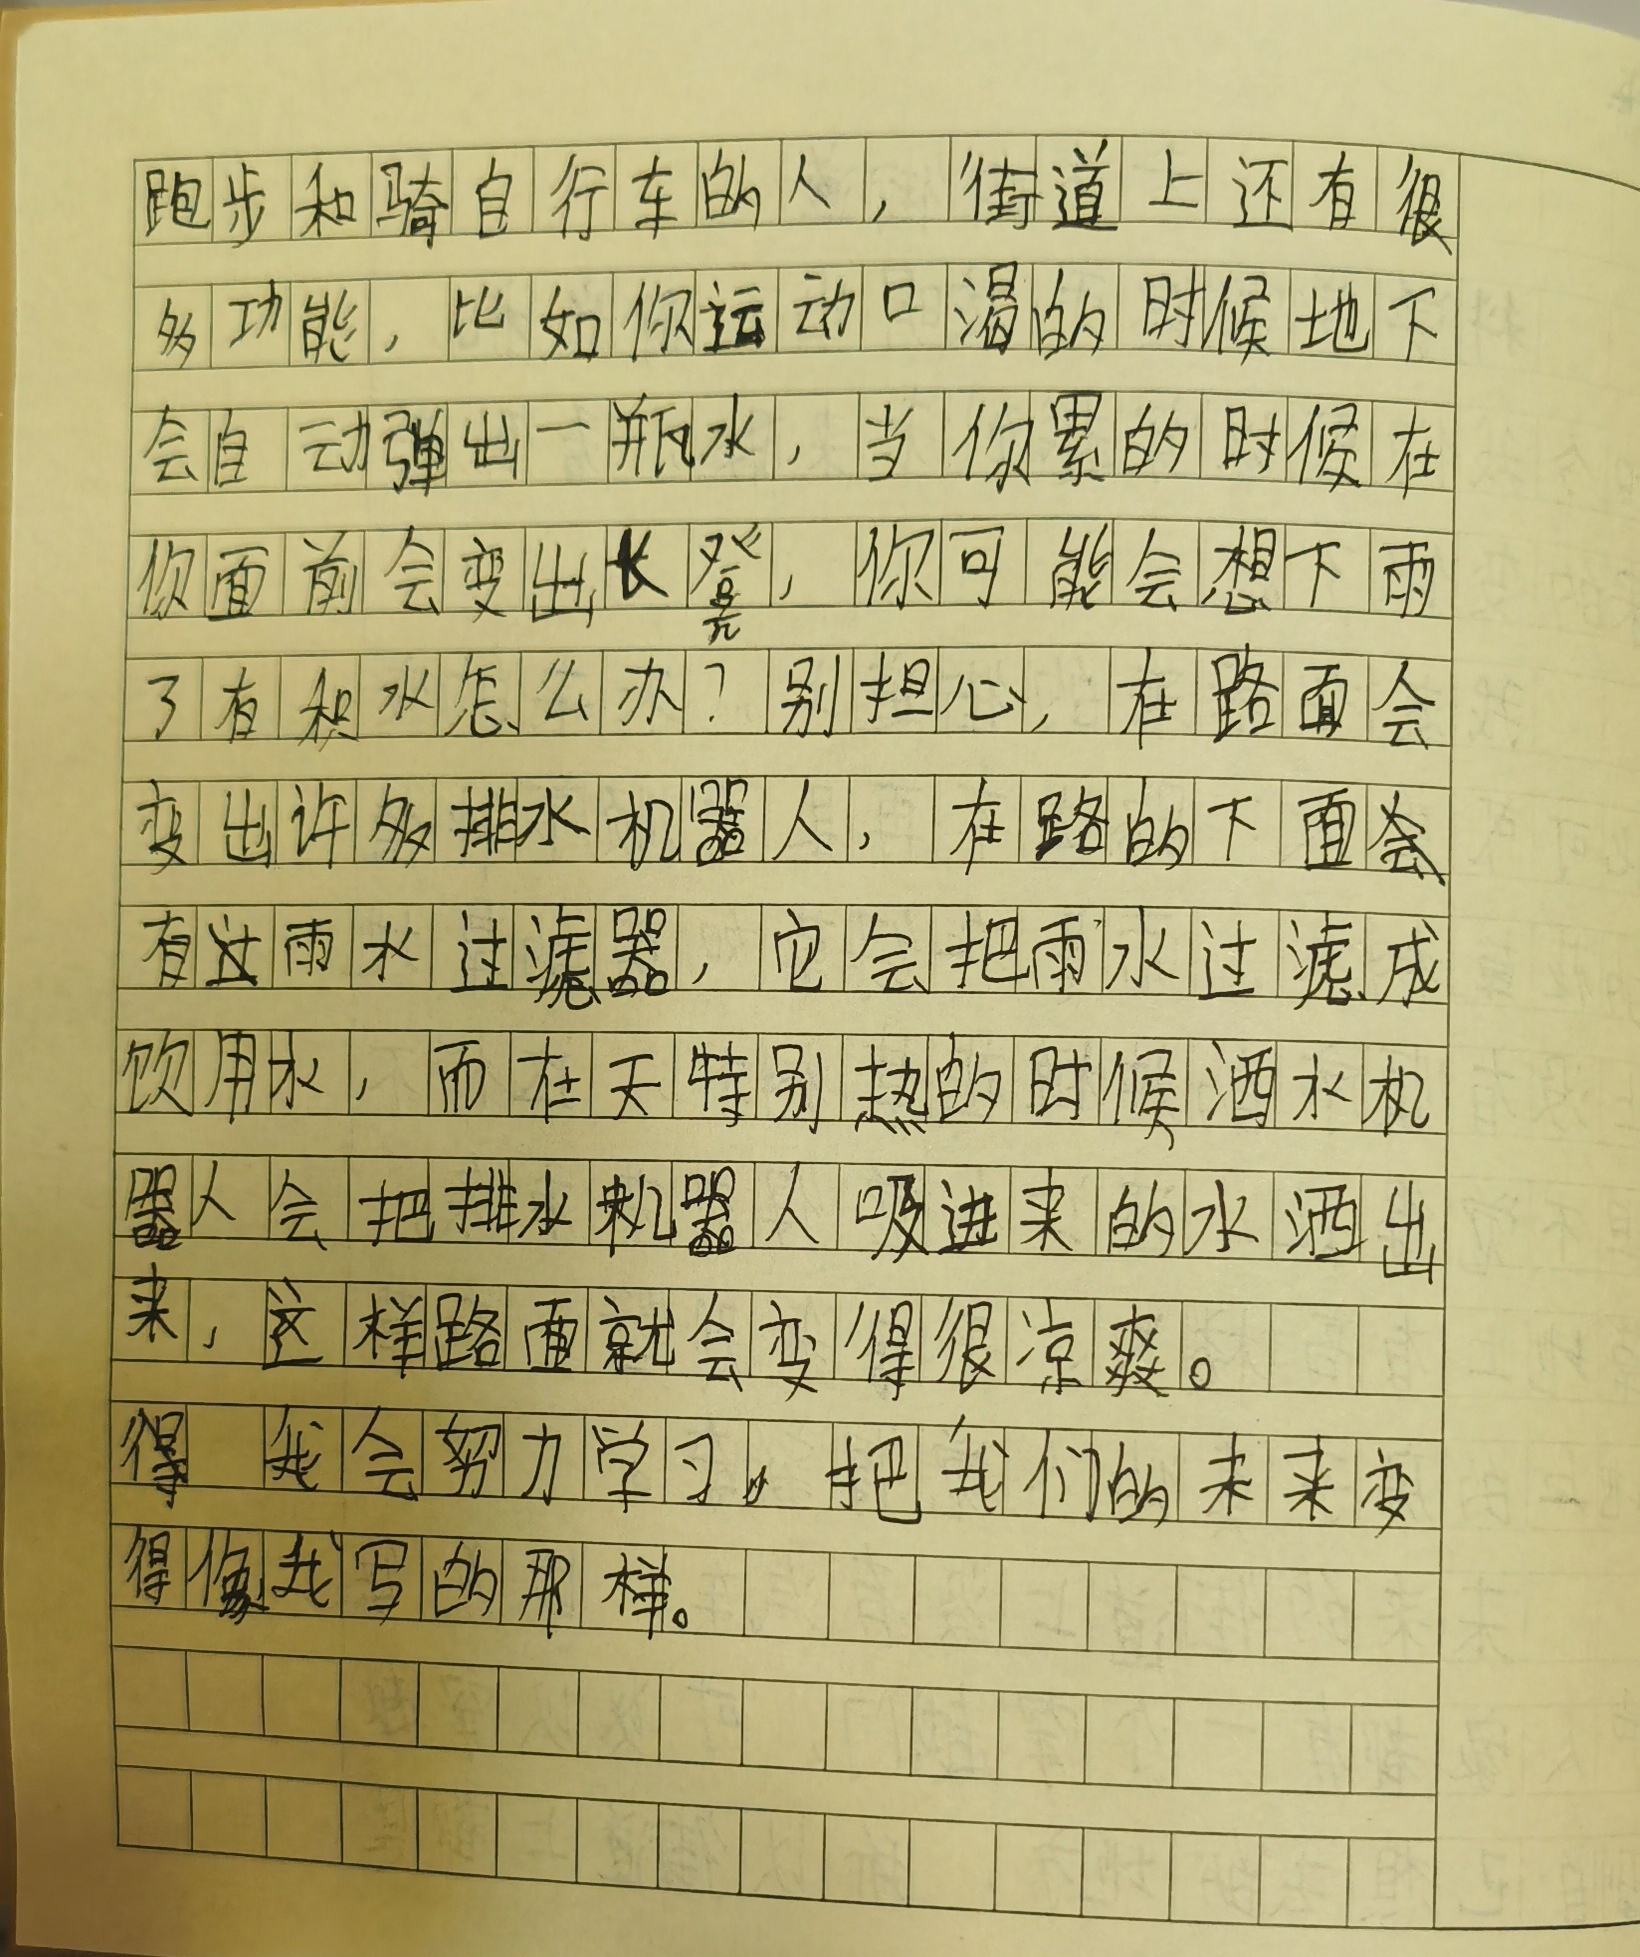 跑步和骑自行车的人，街道上还有很
多功能，比如你运动口渴的时候地下
会自动弹出一瓶水，当你累的时候在
你面前会变出长凳，你可能会想下雨
了有积水怎么办？别担心，在路面会
变出许多排水机器人，在路的下面会
有过雨水过滤器，它会把雨水过滤成
饮用水，而在天特别热的时候洒水机
器人会把排水机器人吸进来的水洒出
来，这样路面就会变得很凉爽。
得 我会努力学习，把我们的未来变
得像我写的那样。